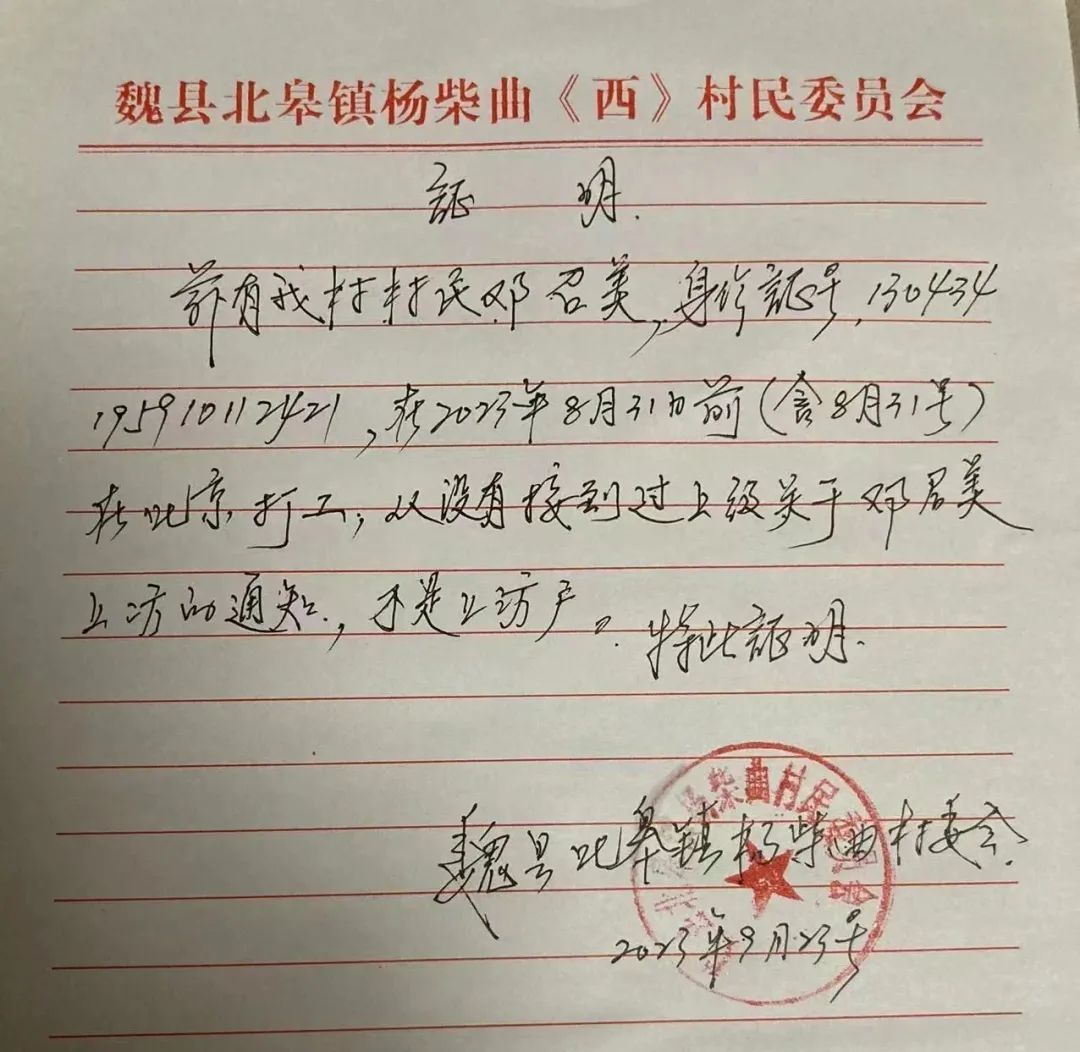 魏县北皋镇杨柴曲《西》村民委员会
証 明.
兹有我村村民邓召美,身份証号,130434
195910112421,在2023年8月31日前(含8月31号)
在北京打工,从没有接到过上级关于邓召美
上访的通知,不是上访户。特此証明.
杨柴曲村民委员会
魏县北皋镇杨柴曲村委会.
2023年9月23号